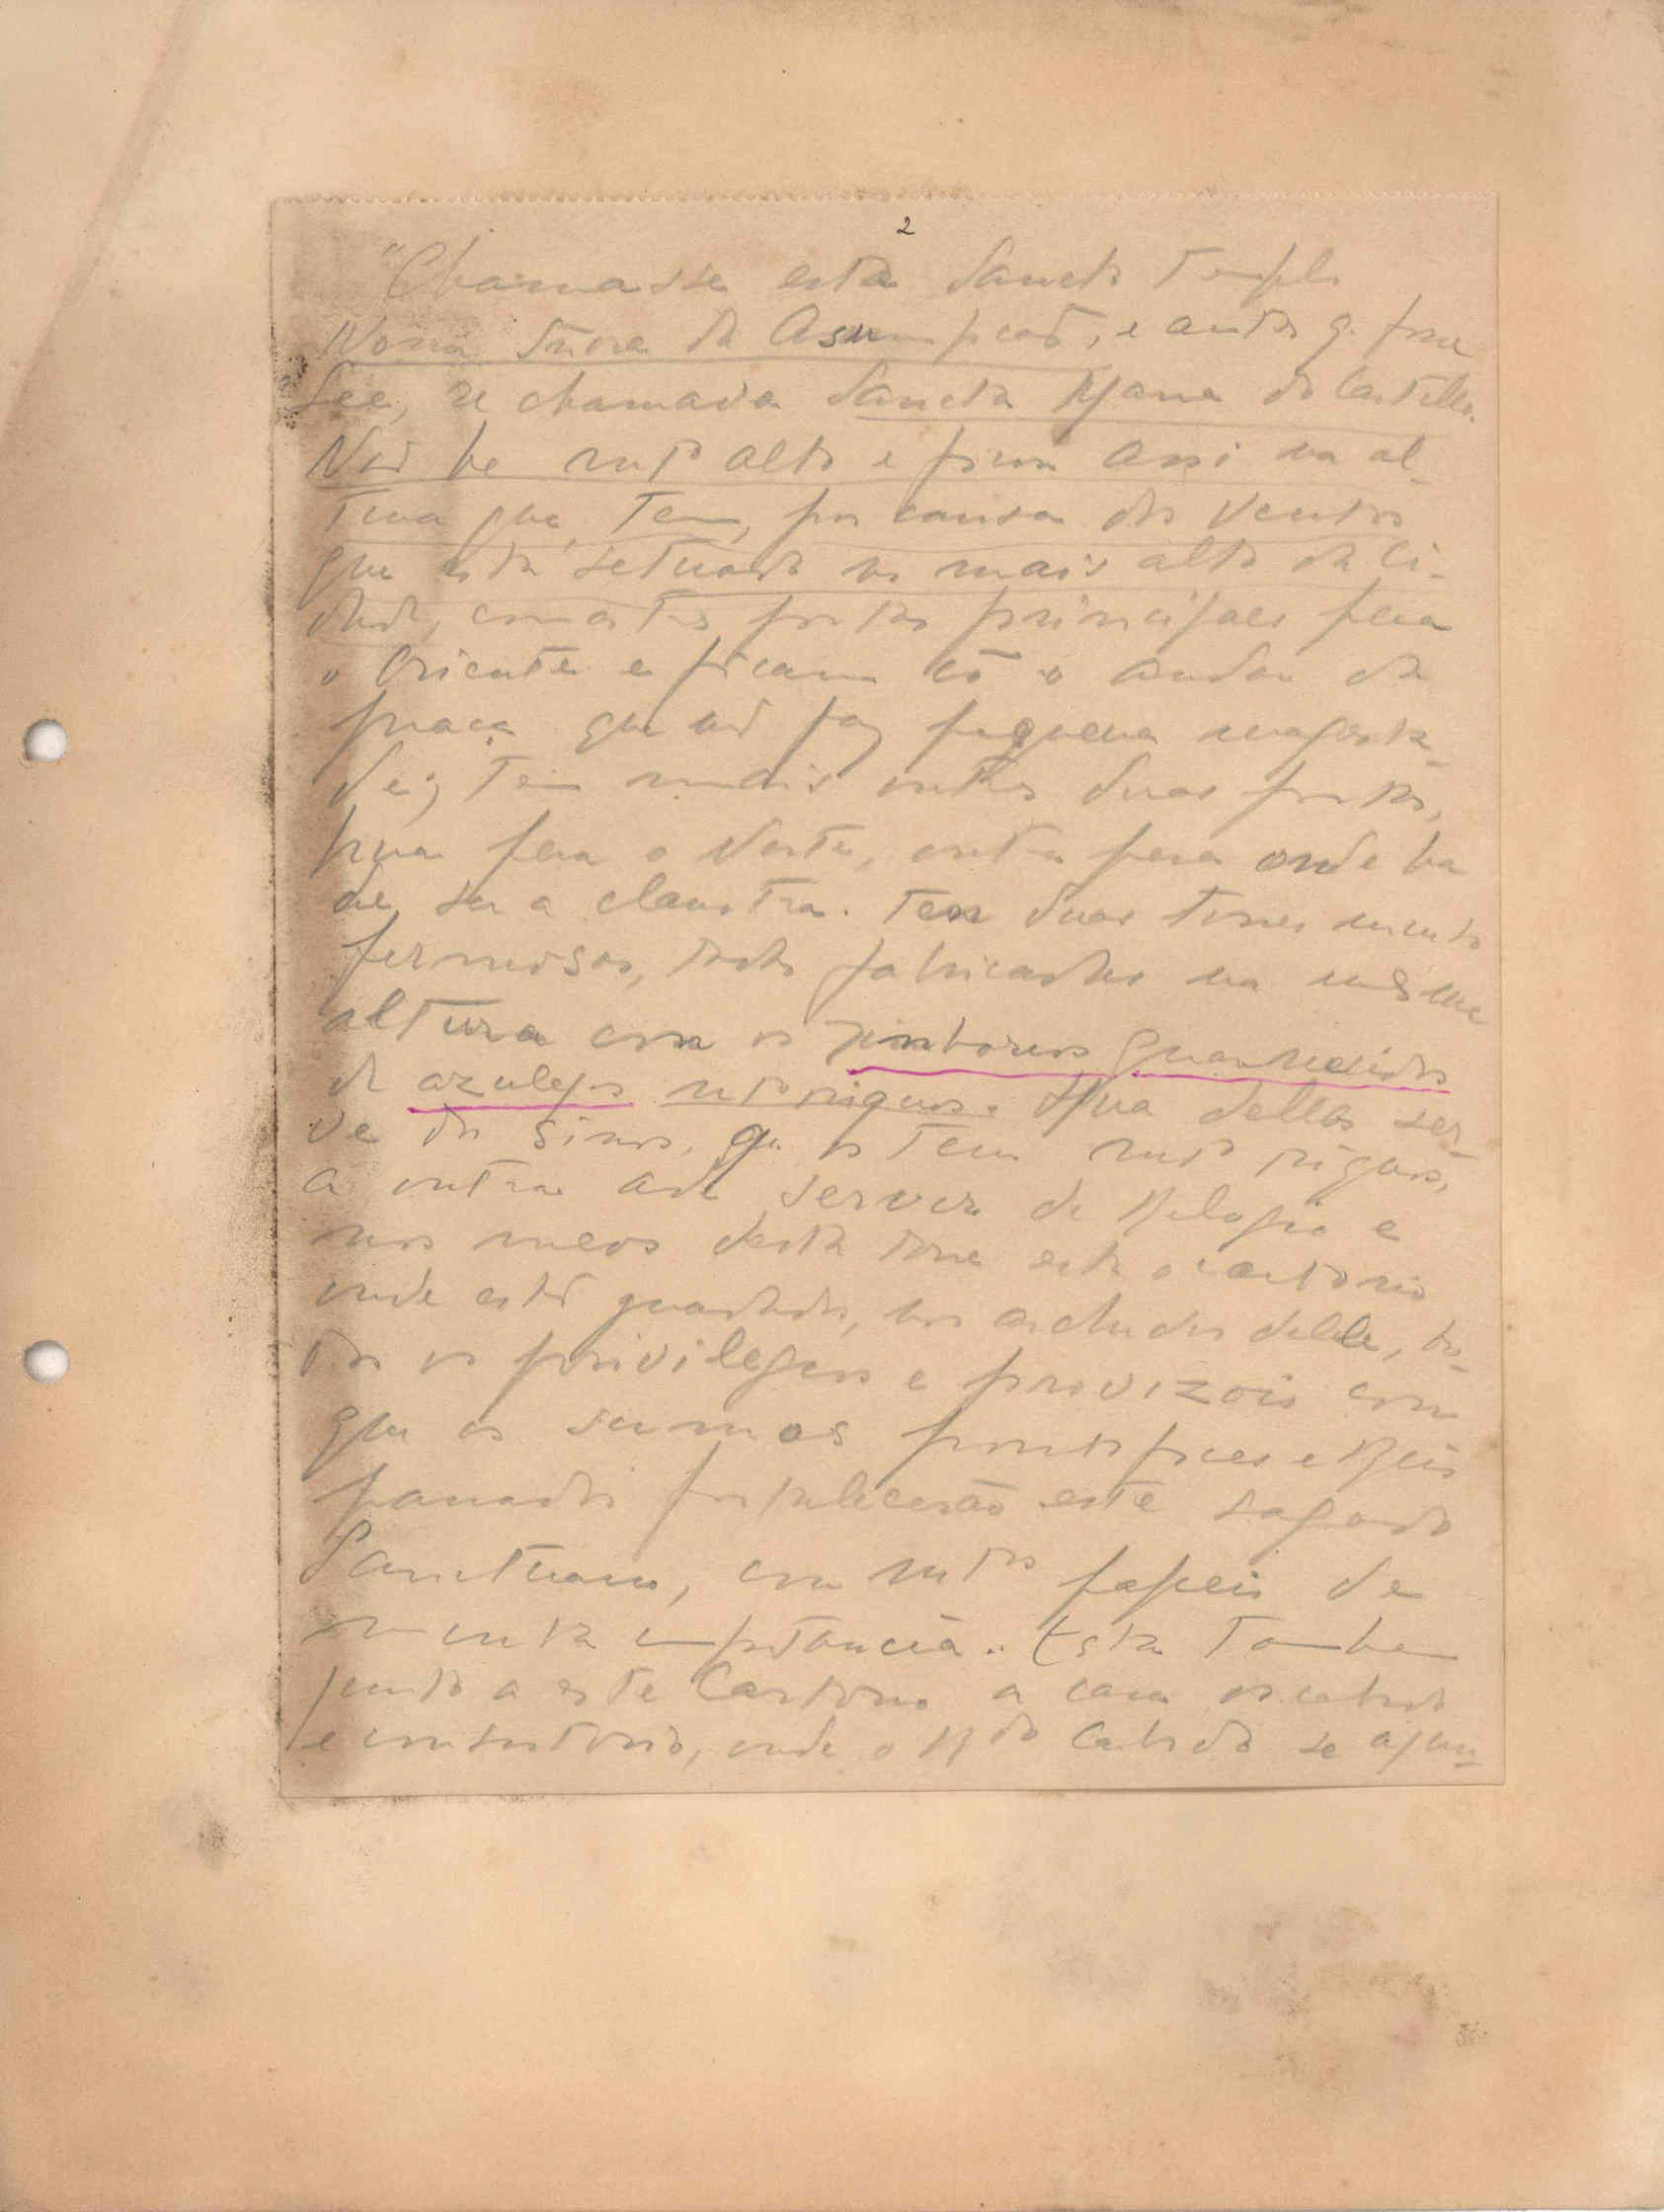 2
"Chamasse este Sancto Templo
Nossa Snora da Asumpcaõ, e antes q. fosse
See, se chamava Sancta Maria do Castello.
Naõ he mtº alto e ficou assi na al-
tura que tem, por causa dos ventos
que está setuado no mais alto da Ci-
dade, com as tres portas principaes pera
o Oriente e ficam cõ o andar da
praça que naõ faz pequena magesta-
de; tem mais outras duas portas,
hua pera o Norte, outra pera onde ha
de ser a claustra. Tem duas torres muito
fermosas, todas fabricadas na mesma
altura com os zimborios guarnecidos
de azulejos mtº riquos. Hua dellas ser-
ve dos sinos, q. os tem mtº riquos,
a outra ade servir de Relogio e
nos meos desta torre está o cartorio
onde estaõ guardados, nos archivos delle, to-
dos os privilegios e provizois com
que os sumos pontifices e Reis
passados fortalecerão este sagrado
Sanctuario, com mtos papeis de
muita importancia. Esta tambem
junto a este Cartorio a casa do cabido
e consistorio, onde o Rdo Cabido se ajun-